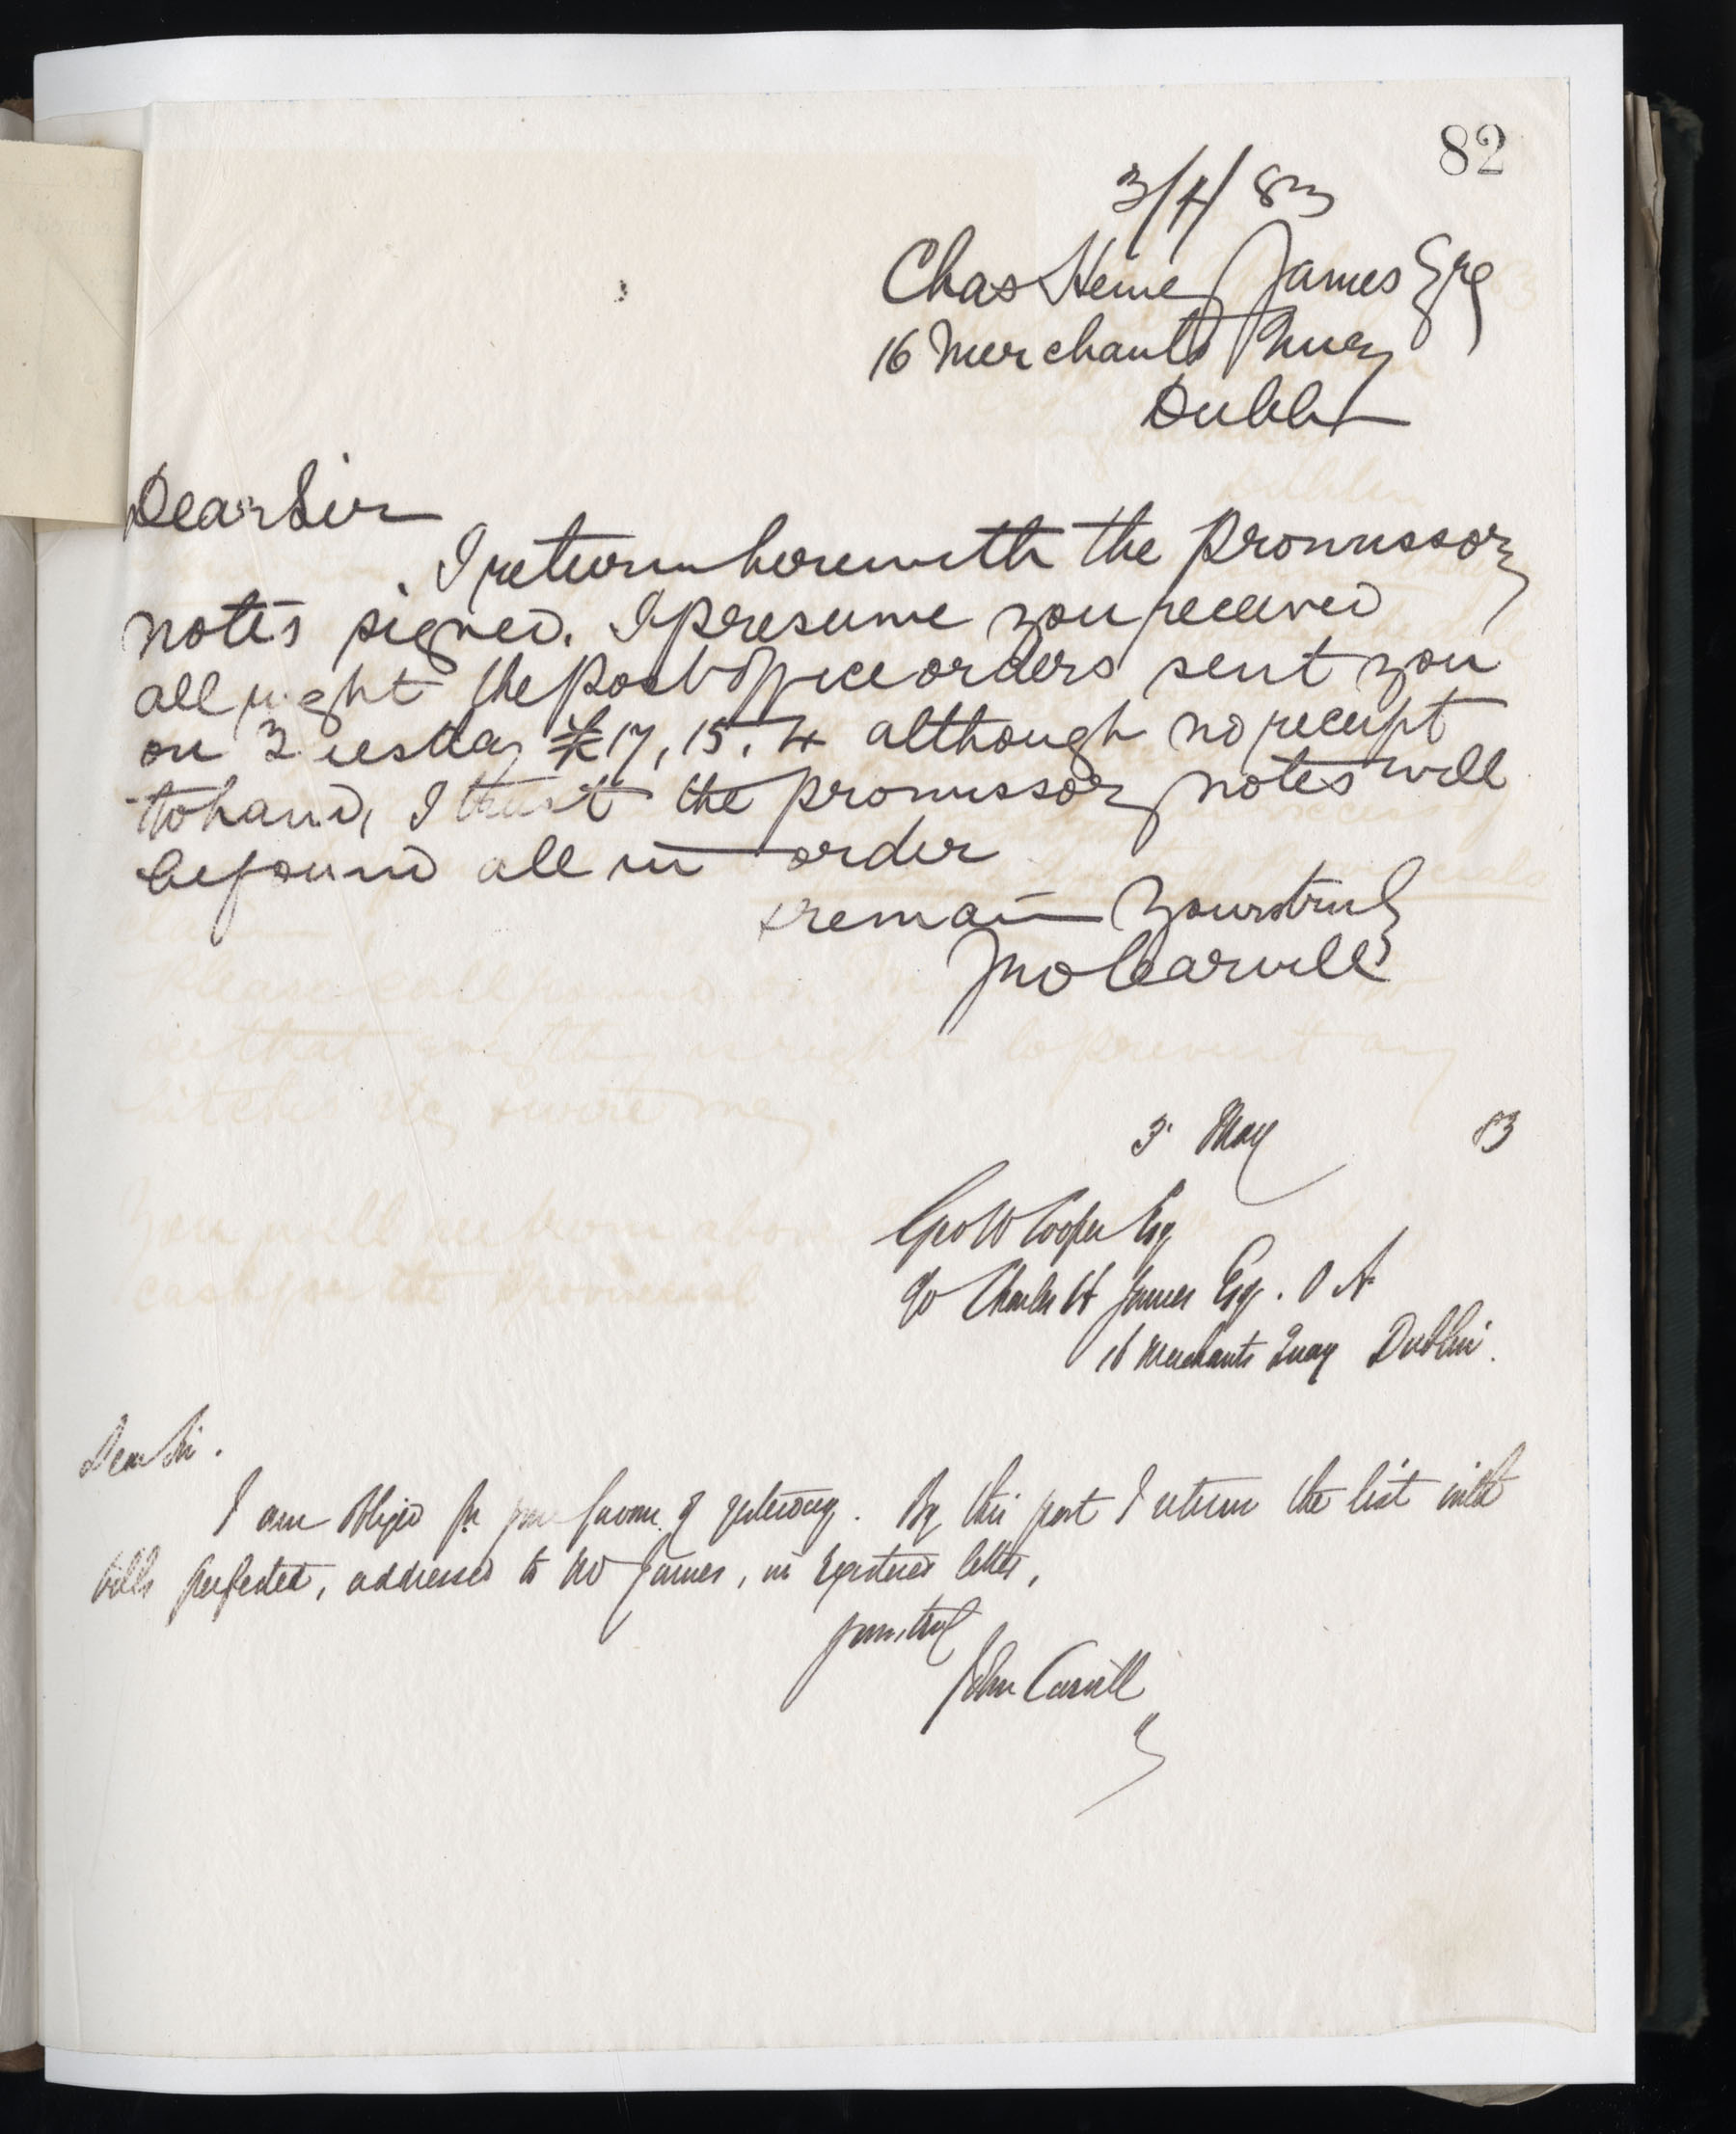 82
3/4/83
Chas Henry James Esq
16 Merchants Quay
Dublin
Dear Sir
I return herewith the promissory
notes signed. I presume you received
all right the post office orders sent you
on Tuesday £17,15.4 although no receipt
to hand, I trust the promissory notes will
be found all in order
& remain Yours truly
Jno Carvill
3 May 83
Geo W Cooper Esq
c/o Charles H James Esq. O A
16 Merchants Quay Dublin.
Dear Sir.
I am obliged for your favour of yesterday. By this post I return the list with
bills perfected, addressed to Mr James, in registered letter.
yours truly
John Carvill